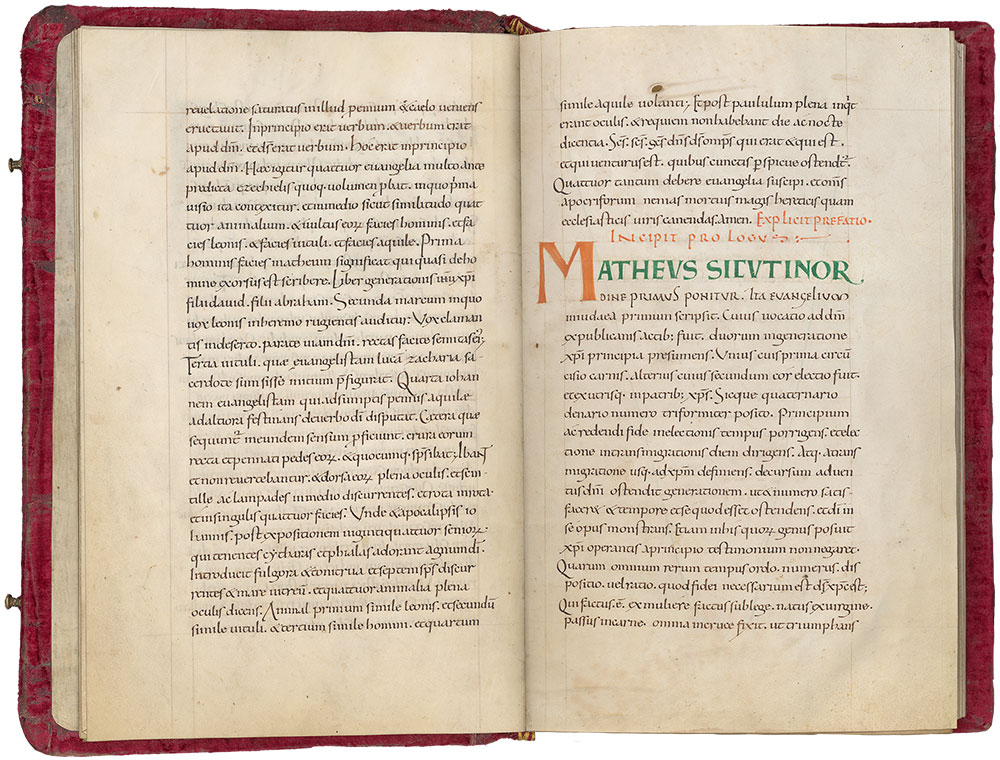 reuelatione saturatus inillud pemium &caelo ueniens
eructauit. Inprincipio erat uerbum. &uerbum erat
apud dm̄. et d̄s erat uerbum. Hoc erat inprincipio
apud dm̄. Haec igitur quattuor euangelia multo ante
predicta ezechielis quoq. uolumen ꝓbat. inquo p̄ma
uisio ita contexitur. et inmedio sicut similitudo quat
tuor animalium. &uultus eoꝝ facies hominis. et fa
cies leonis. &facies uituli. et facies aquile. Prima
hominis facies matheum significat qui quasi deho
mine exorsus est scribere. Liber generationis ih̄u xp̄i
filii dauid. filii abraham. Secunda marcum inquo
uox leonis inheremo rugientis auditur; Vox claman
tis indeserto. parate uiam dn̄i. rectas facite semitas ei;
Tertia uituli. quae euangelistam lucā zacharia sa-
cerdote sumsisse initium p̄figurat. Quarta iohan
nem euangelistam qui adsumptis pennis aquilae
adaltiora festinans deuerbo dī disputat. Cetera quae
sequunt̄ ineundem sensum ꝓficiunt. crura eorum
recta et pennati pedes eoꝝ. &quocumq. sp̄s ibat; Ibant
et nonreuertebantur. &dorsa eoꝝ plena oculis. et scin-
tille ac lampades inmedio discurrentes. et rota inrota.
et insingulis quattuor facies. Vnde &apocalipsis io
hannis. post expositionem uigintiquattuor senioꝝ.
qui tenentes cytharas et phialas adorant agnum dī.
Introducit fulgora &tonitrua et septem sp̄s discur
rentes &mare uitreū. et quattuor animalia plena
oculis dicens. Animal primum simile leonis. et secundū
simile uituli. &tertium simile homini. et quartum
simile aquile uolanti; Et post paululum plena inqt̄
erant oculis. &requiem nonhabebant die ac nocte
dicentia. Sc̄s. sc̄s. sc̄s dn̄s d̄s omp̄s qui erat &qui est.
et qui uenturus est. quibus cunctis p̄spicue ostendit̄.
Quattuor tantum debere euangelia suscipi. et om̄s
apocriforum nenias mortuis magis hereticis quam
ecclesiasticis uiris canendas. amen. Explicit prefatio.
Incipit prologus
MATHEVS SICUTINOR
DINE PRIMUS PONITUR. ITA EVANGELIUM
iniudaea primum scripsit. Cuius uocatio ad dm̄
expublicanis actib; fuit. duorum ingeneratione
xp̄i principia presumens. Vnius cuius prima circū
cisio carnis. alterius cuius secundum cor electio fuit.
et exutrisq. inpatrib; xp̄s. Sicque quaternario
denario numero triformiter posito. Principium
acredendi fide inelectionis tempus porrigens. et elec
tione intransmigrationis diem dirigens. Atq. atrans
migratione usq. ad xp̄m definiens. decursum aduen
tus dn̄i ostendit generationem. ut &numero satis-
faceret &tempore et se quod esset ostendens. et dī in
se opus monstrans. Etiam inhis quoꝝ genus posuit
xp̄i operantis aprincipio testimonium nonnegaret.
Quarum omnium rerum tempus ordo. numerus. dis
positio. uel ratio. quod fidei necessarium est d̄s xp̄s est;
Qui factus .ē. exmuliere factus sublege. natus exuirgine.
passus incarne. omnia incruce fixit. ut triumphans